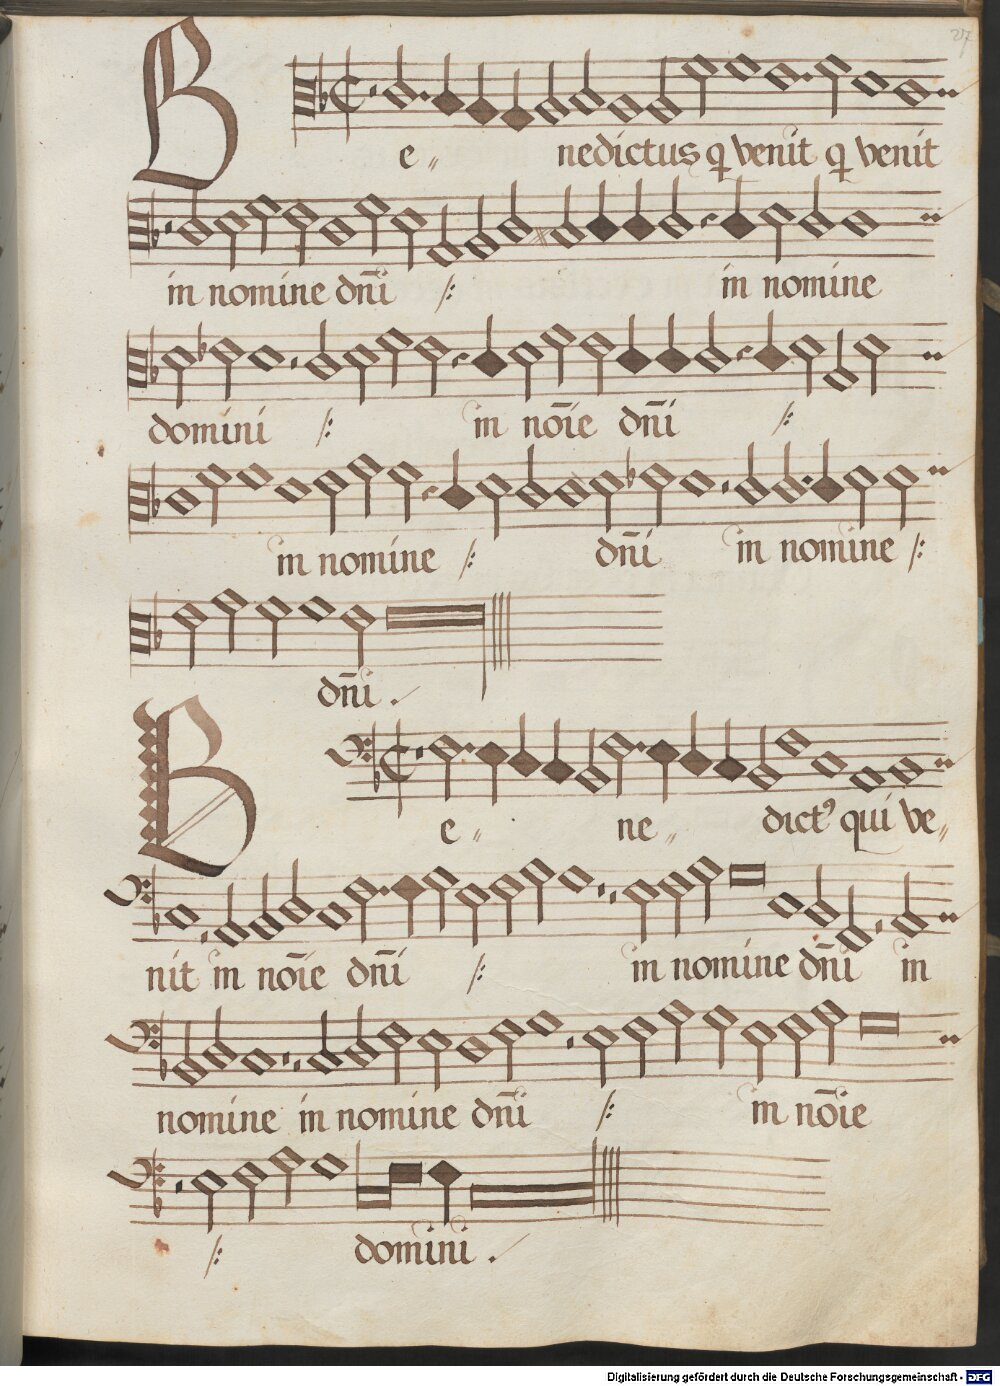 27
Be〃 nedictus q venit q venit
in nomine dn̄i ·/: in nomine
domini ·/: in nōie dn̄i ·/:
in nomine ·/: dn̄i in nomine ·/:
dn̄i .
Be〃 ne〃 dictꝰ qui ve〃
nit in nōie dn̄i ·/: in nomine dn̄i in
nomine in nomine dn̄i ·/: in nōie
·/: domini .
Digitalisierung gefördert durch die Deutsche Forschungsgemeinschaft - DFG